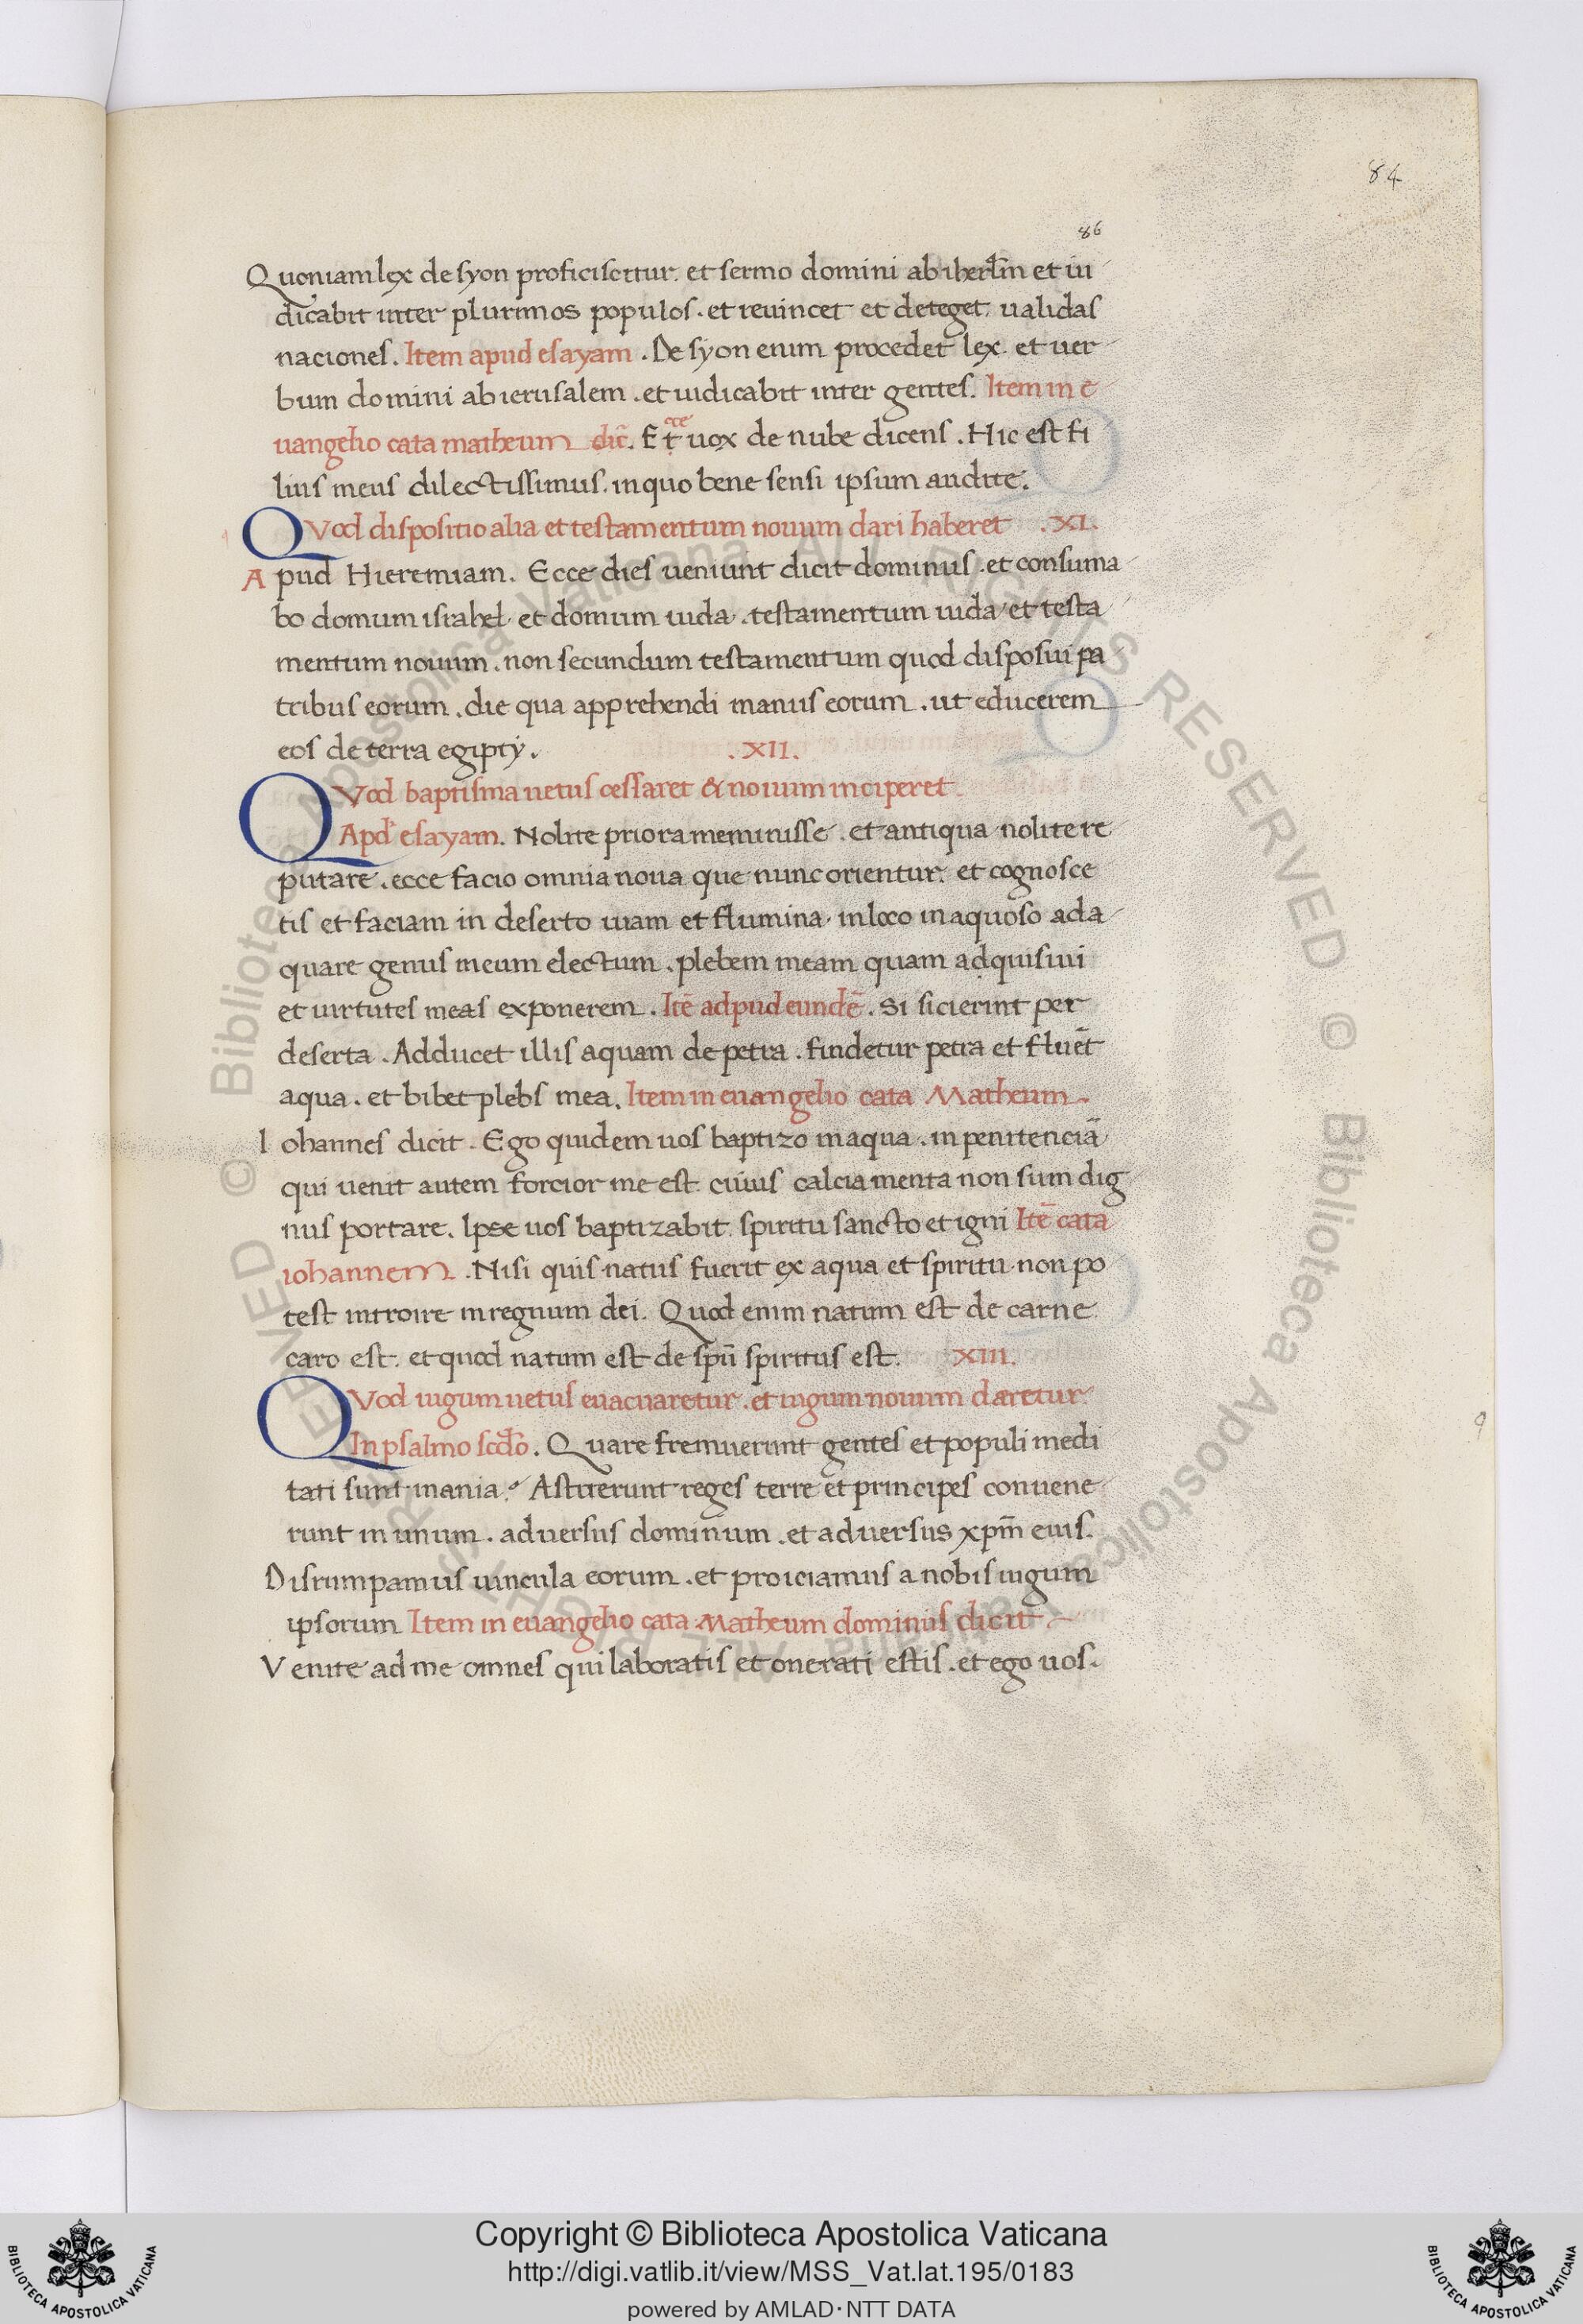 84
86
Quoniam lex de syon proficiscitur. et sermo domini ab iherl̄m et iu
dicabit inter plurimos populos. et reuincet et deteget. ualidas
naciones. Item apud esayam. De syon enim procedet lex. et uer
bum domini ab ierusalem. et iudicabit inter gentes. Item in e
uangelio cata matheum dic̄. Et ecce uox de nube dicens. Hic est fi
lius meus dilectissimus. in quo bene sensi ipsum audite.
QVod dispositio alia et testamentum nouum dari haberet .XI.
Apud Hieremiam. Ecce dies ueniunt dicit dominus. et consuma
bo domum israhel et domum iuda. testamentum iuda et testa
mentum nouum. non secundum testamentum quod disposui pa
tribus eorum. die qua apprehendi manus eorum. ut educerem
eos de terra egipty. .XII.
QVod baptisma uetus cessaret & nouum inciperet.
Apd' esayam. Nolite priora meminisse. et antiqua nolite re
putare. ecce facio omnia noua que nunc orientur. et cognosce
tis et faciam in deserto uiam et flumina. in loco inaquoso ada
quare genus meum electum. plebem meam quam adquisiui
et uirtutes meas exponerem. Itē adpud eundē. Si sicierint per
deserta. Adducet illis aquam de petra. findetur petra et fluet̄
aqua. et bibet plebs mea. Item in euangelio cata Matheum.
Iohannes dicit. Ego quidem uos baptizo in aqua. in penitenciā
qui uenit autem forcior me est. cuius calciamenta non sum dig
nus portare. Ipse uos baptizabit. spiritu sancto et igni Itē cata
iohannem. Nisi quis natus fuerit ex aqua et spiritu non po
test introire in regnum dei. Quod enim natum est de carne.
caro est. et quod natum est de spū spiritus est. XIII.
QVod iugum uetus euacuaretur. et iugum nouum daretur.
In psalmo scd̄o. Quare fremuerunt gentes et populi medi
tati sunt inania. Astiterunt reges terre et principes conuene
runt in unum. aduersus dominum. et aduersus xp̄m eius.
Disrumpamus uincula eorum. et proiciamus a nobis iugum
ipsorum Item in euangelio cata Matheum dominus dicit
Venite ad me omnes qui laboratis et onerati estis. et ego uos.
Copyright © Biblioteca Apostolica Vaticana
http://digi.vatlib.it/view/MSS_Vat.lat.195/0183
powered by AMLAD·NTT DATA